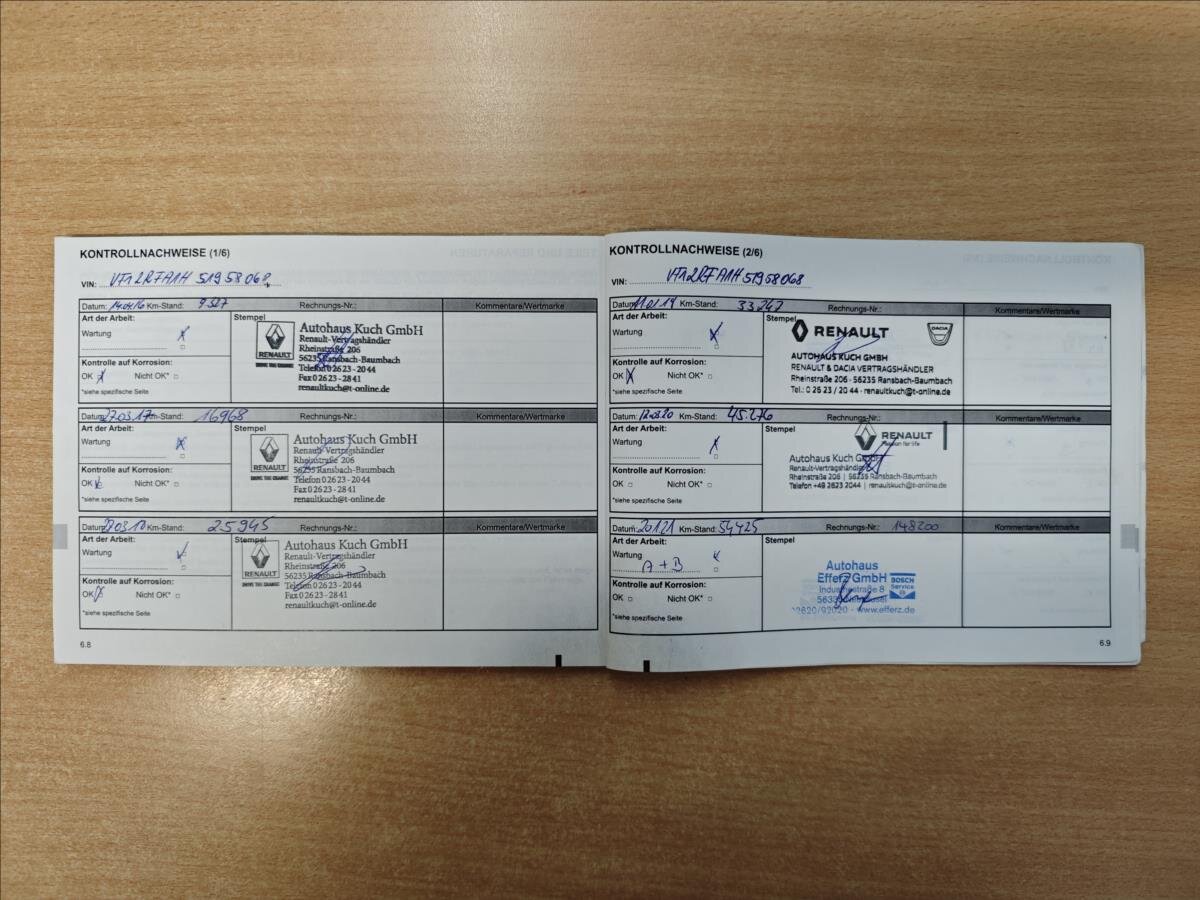 KONTROLLNACHWEISE (1/6)
VIN: VF12RFA1H 51958068
Datum: 14.04.16 Km-Stand: 9327 Rechnungs-Nr.: Kommentare/Wertmarke
Art der Arbeit: Stempel
Wartung x
Autohaus Kuch GmbH
Renault-Vertragshändler
Rheinstraße 206
56235 Ransbach-Baumbach
Telefon 0 26 23 - 20 44
Fax 0 26 23 - 28 41
renaultkuch@t-online.de
RENAULT
DRIVE THE CHANGE
Kontrolle auf Korrosion:
OK x Nicht OK*
*siehe spezifische Seite
Datum: 27.03.17 Km-Stand: 16968 Rechnungs-Nr.: Kommentare/Wertmarke
Art der Arbeit: Stempel
Wartung x
Autohaus Kuch GmbH
Renault-Vertragshändler
Rheinstraße 206
56235 Ransbach-Baumbach
Telefon 0 26 23 - 20 44
Fax 0 26 23 - 28 41
renaultkuch@t-online.de
RENAULT
DRIVE THE CHANGE
Kontrolle auf Korrosion:
OK Nicht OK*
*siehe spezifische Seite
Datum: Km-Stand: 25945 Rechnungs-Nr.: Kommentare/Wertmarke
Art der Arbeit: Stempel
Wartung
Autohaus Kuch GmbH
Renault-Vertragshändler
Rheinstraße 206
56235 Ransbach-Baumbach
Telefon 0 26 23 - 20 44
Fax 0 26 23 - 28 41
renaultkuch@t-online.de
RENAULT
DRIVE THE CHANGE
Kontrolle auf Korrosion:
OK Nicht OK*
*siehe spezifische Seite
6.8
KONTROLLNACHWEISE (2/6)
VIN: VF12RFA1H 51958068
Datum: 11.01.19 Km-Stand: 33247 Rechnungs-Nr.: Kommentare/Wertmarke
Art der Arbeit: Stempel
Wartung x
RENAULT DACIA
AUTOHAUS KUCH GMBH
RENAULT & DACIA VERTRAGSHÄNDLER
Rheinstraße 206 · 56235 Ransbach-Baumbach
Tel.: 0 26 23 / 20 44 · renaultkuch@t-online.de
Kontrolle auf Korrosion:
OK x Nicht OK*
*siehe spezifische Seite
Datum: 12.03.20 Km-Stand: 45.276 Rechnungs-Nr.: Kommentare/Wertmarke
Art der Arbeit: Stempel
Wartung x
RENAULT
Passion for life
Autohaus Kuch GmbH
Renault-Vertragshändler
Rheinstraße 206 | 56235 Ransbach-Baumbach
Telefon +49 2623 2044 | renaultkuch@t-online.de
Kontrolle auf Korrosion:
OK Nicht OK*
*siehe spezifische Seite
Datum: Km-Stand: 54425 Rechnungs-Nr.: 148200 Kommentare/Wertmarke
Art der Arbeit: Stempel
Wartung
A + B
Autohaus
Efferz GmbH
Industriestraße 8
/92020 - www.efferz.de
BOSCH
Service
Kontrolle auf Korrosion:
OK Nicht OK*
*siehe spezifische Seite
6.9